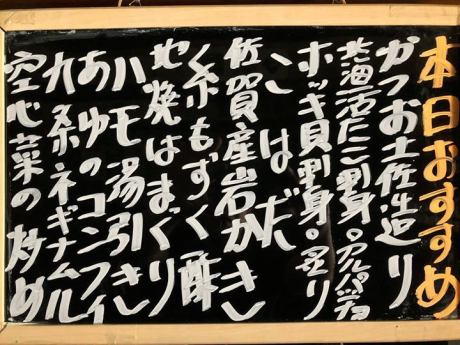 本日おすすめ
かつお土佐造り
北海活だこ刺身。カルパッチョ
ホッキ貝刺身。炙り
こはだ
佐賀産岩がき
くもずく酢
地焼はまぐり
ハモ湯引き
あゆのコンフィ
九条ネギナムル
空心菜の炒め